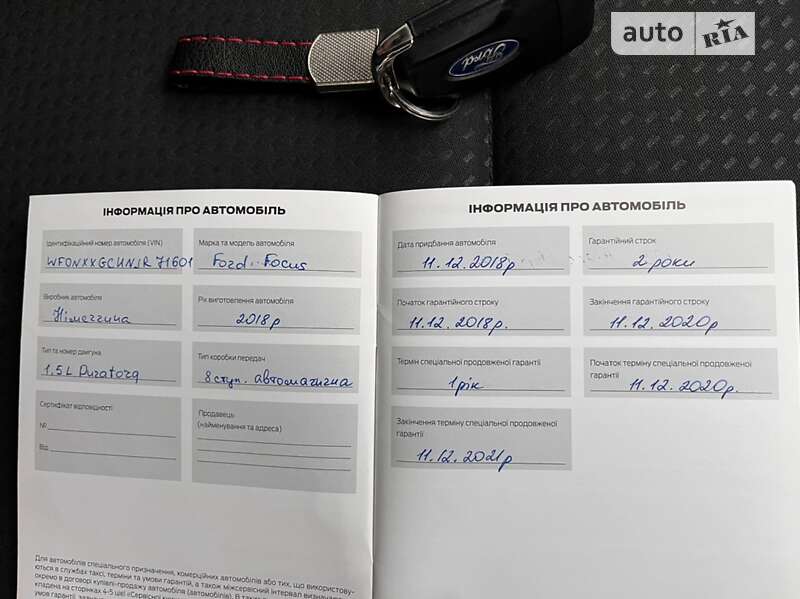 auto RIA
Ford
ІНФОРМАЦІЯ ПРО АВТОМОБІЛЬ
Ідентифікаційний номер автомобіля (VIN)
WF0NXXGCHNJR71601
Марка та модель автомобіля
Ford Focus
Виробник автомобіля
Німеччина
Рік виготовлення автомобіля
2018р
Тип та номер двигуна
1.5L Duratorq
Тип коробки передач
8 ступ. автоматична
Сертифікат відповідності
№
Від
Продавець
(найменування та адреса)
Для автомобілів спеціального призначення, комерційних автомобілів або тих, що використову-
ються в службах таксі, терміни та умови гарантій, а також міжсервісний інтервал визначено
окремо в договорі купівлі-продажу автомобіля (автомобілів). В
кладена на сторінках 4-5 цієї «Сервісної
умов гарантії,
ІНФОРМАЦІЯ ПРО АВТОМОБІЛЬ
Дата придбання автомобіля
11.12.2018р
Гарантійний строк
2 роки
Початок гарантійного строку
11.12.2018р.
Закінчення гарантійного строку
11.12.2020р
Термін спеціальної продовженої гарантії
1 рік
Початок терміну спеціальної продовженої
гарантії
11.12.2020р.
Закінчення терміну спеціальної продовженої
гарантії
11.12.2021р